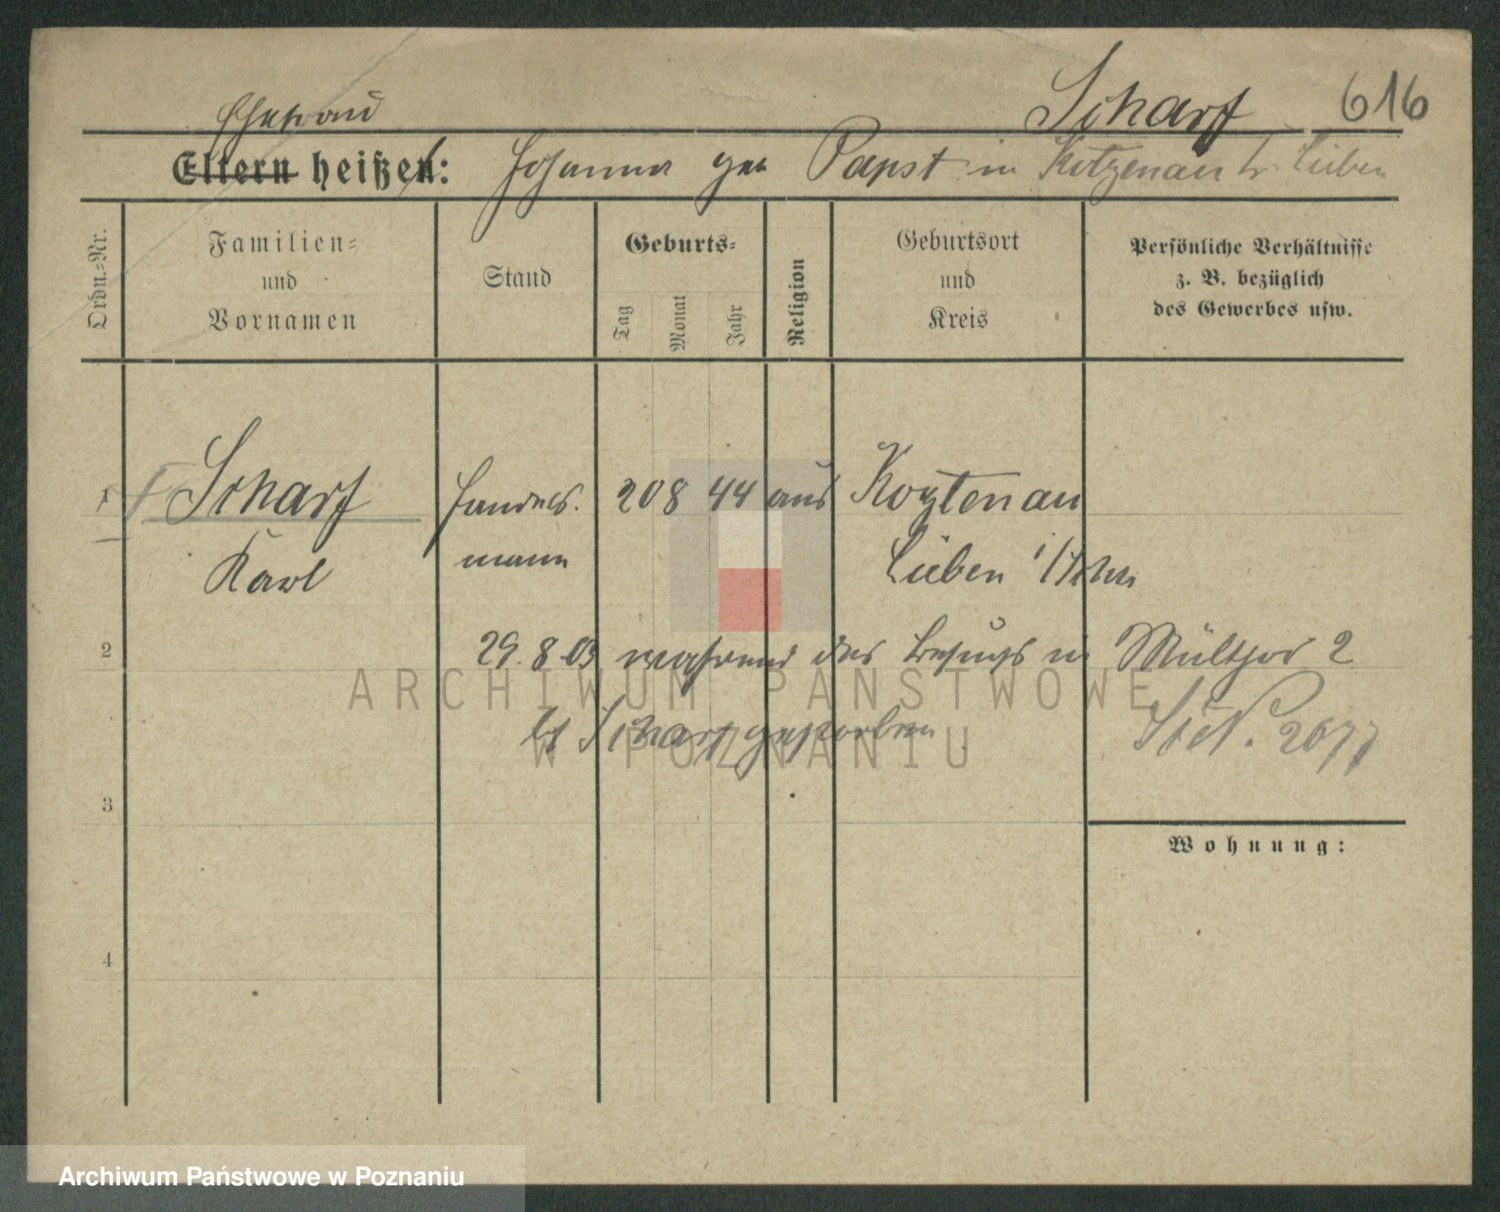 Scharf 616
Ehefrau
Eltern heißen: Johanna geb Papst in Kotzenau Kr. Lüben
Ordn.=Nr.
Familien=
und
Vornamen
Stand
Geburts=
Tag
Monat
Jahr
Religion
Geburtsort
und
Kreis
Persönliche Verhältnisse
z. B. bezüglich
des Gewerbes usw.
† Scharf Handels. 20 8 44 aus Kotztenau
Karl mann Lüben i/Schles
2 29. 8. 03 während des Besuchs in Mülthor 2
bei Scharf gestorben StN. 2677
3
Wohnung:
4
ARCHIWUM PAŃSTWOWE
W POZNANIU
Archiwum Państwowe w Poznaniu